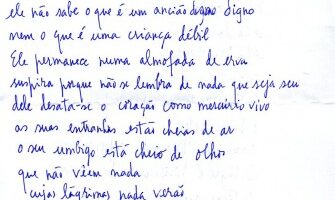 ele não sabe o que é um ancião digno digno
nem o que é uma criança débil
Ele permanece numa almofada de erva
suspira porque não se lembra de nada que seja seu
dele desata-se o coração como mercúrio vivo
as suas entranhas estão cheias de ar
o seu umbigo está cheio de olhos
que não vêem nada
cujas lágrimas nada verão